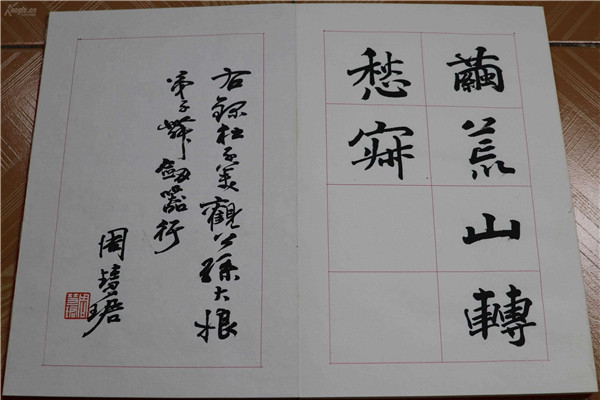 繭荒山轉
愁寂
右錄杜子美觀公孫大娘
弟子舞劍器行
周慧珺